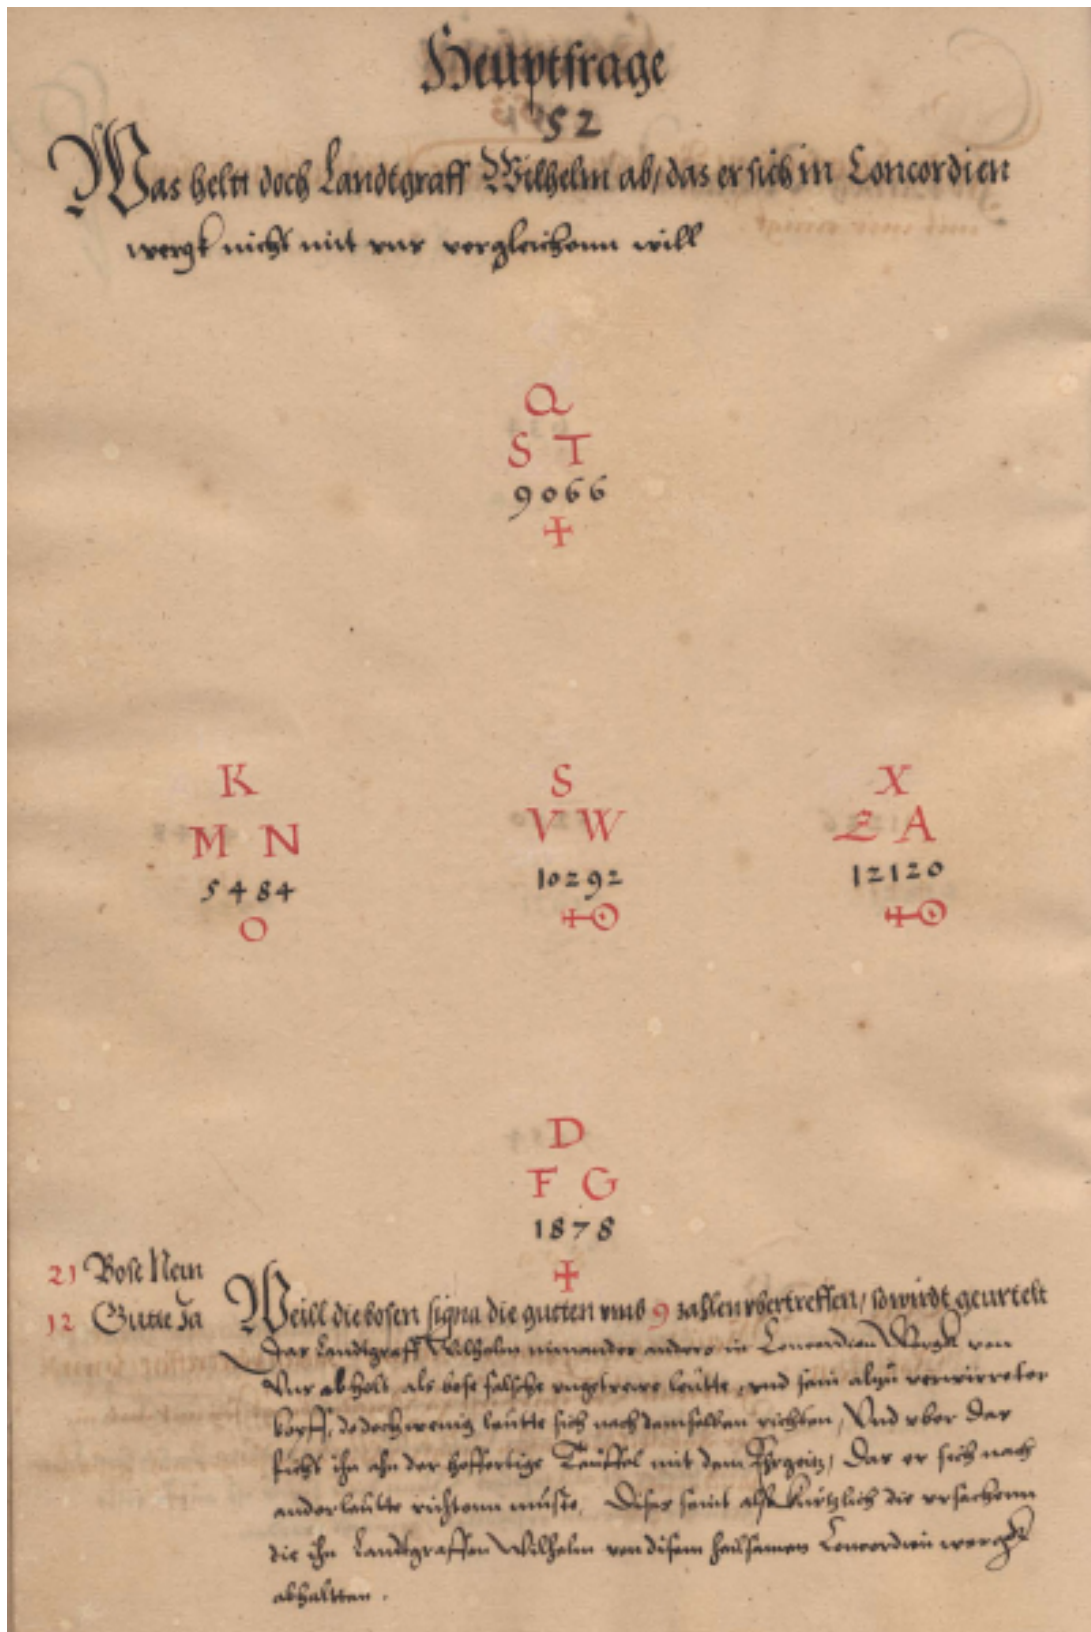 Heuptfrage
52
Was helt doch Landtgraff Wilhelm ab, das er sich in Concordien
wergk nicht mit vns vergleichenn will
Q
S T
9066
+
K S X
M N V W Z A
5484 10292 12120
O
D
F G
1878
+
21 Bose Nein
12 Gutte Ja
Weill die bosen signa die gutten vmb 9 zahlen vbertreffen, so wirdt geurtelt
Das Landtgraff Wilhelm nimandes anders in Concordien Wergk von
Vns abhelt, als bose falsche vngetrewe leutte, vnd sein alzu verwirreter
kopff, do doch wenig leutte sich nach demselben richten, Vnd vber das
ficht ihn ahn der hoffertige Teuffel mit dem Ehrgeitz, Das er sich nach
ander leutte richtenn muste. Dises seint also kurtzlich die vrsachenn
die ihn Landtgraffen Wilhelm von disem heilsamen Concordien wergk
abhaltten.